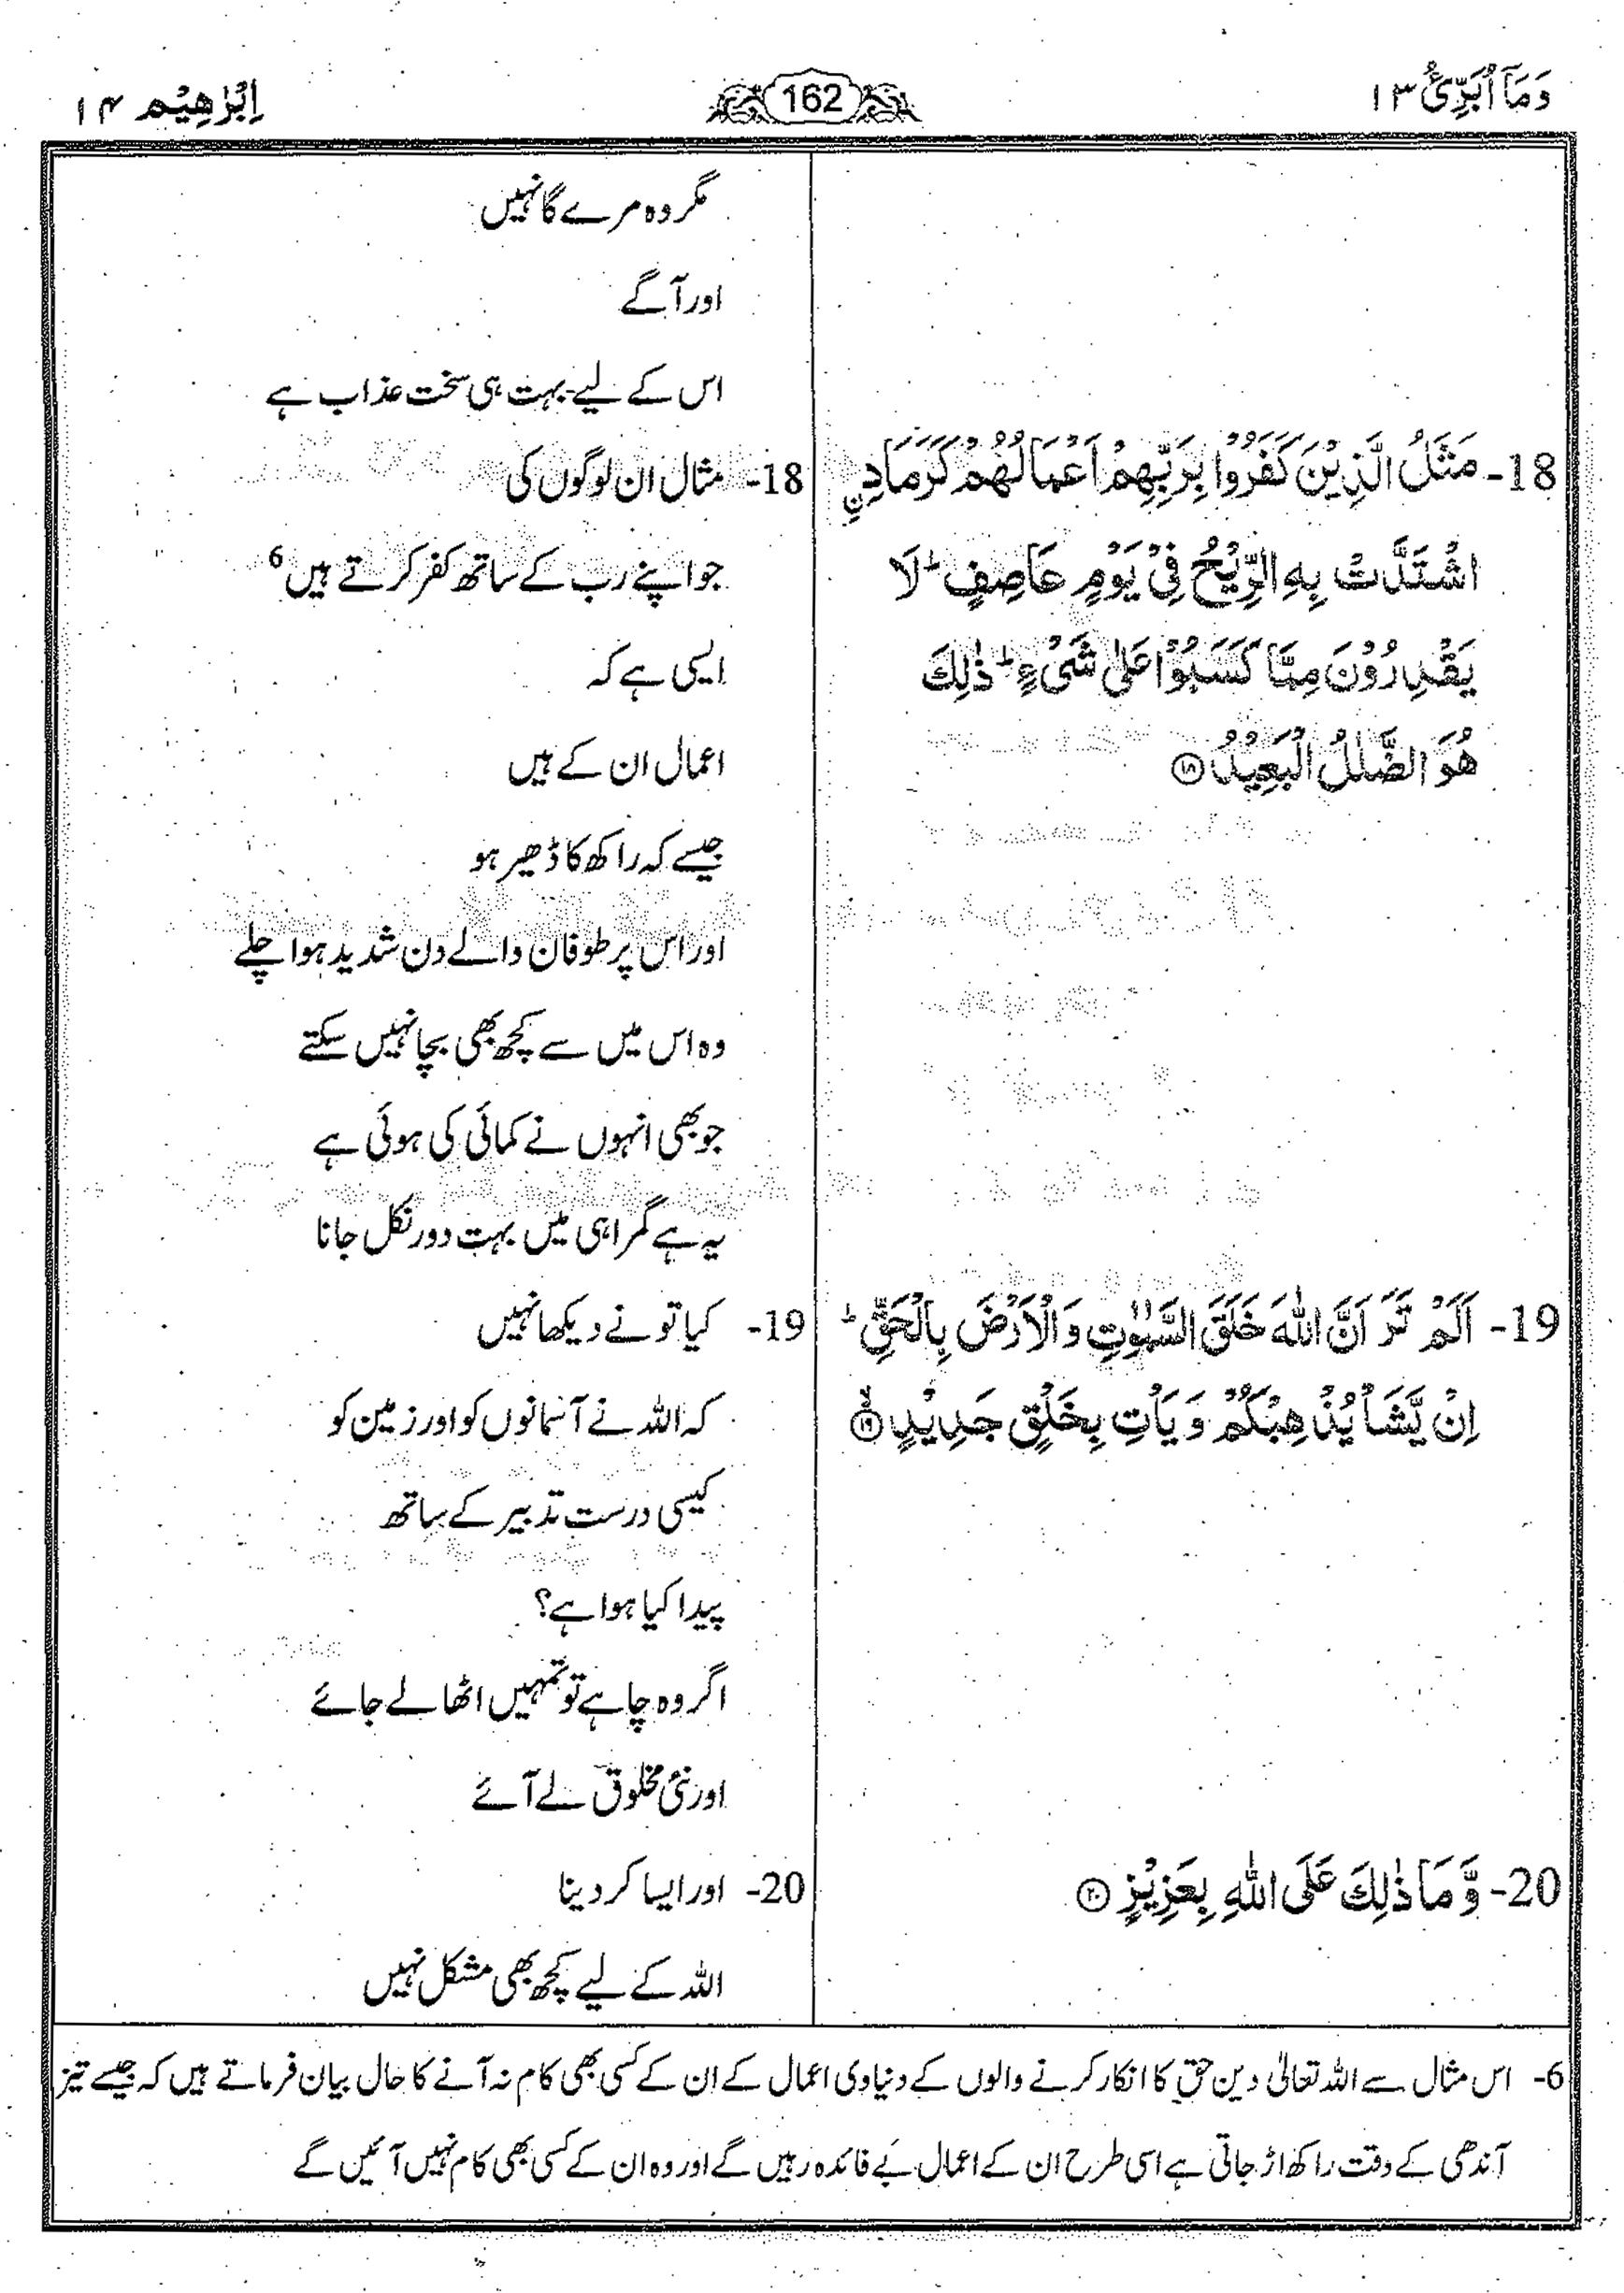 وَمَآ اُبَرِّئُ ۱۳
162
اِبْرٰهِيْم ۱۴
18- مَثَلُ الَّذِيْنَ كَفَرُوْا بِرَبِّهِمْ اَعْمَالُهُمْ كَرَمَادِنِ
اشْتَدَّتْ بِهِ الرِّيْحُ فِيْ يَوْمٍ عَاصِفٍ ؕ لَا
يَقْدِرُوْنَ مِمَّا كَسَبُوْا عَلٰى شَيْءٍ ؕ ذٰلِكَ
هُوَ الضَّلٰلُ الْبَعِيْدُ ۝۱۸
19- اَلَمْ تَرَ اَنَّ اللّٰهَ خَلَقَ السَّمٰوٰتِ وَالْاَرْضَ بِالْحَقِّ ؕ
اِنْ يَّشَاْ يُذْهِبْكُمْ وَيَاْتِ بِخَلْقٍ جَدِيْدٍ ۙ۝۱۹
20- وَّمَا ذٰلِكَ عَلَى اللّٰهِ بِعَزِيْزٍ ۝۲۰
مگر وہ مرے گا نہیں
اور آگے
اس کے لیے بہت ہی سخت عذاب ہے
18- مثال ان لوگوں کی
جو اپنے رب کے ساتھ کفر کرتے ہیں 6
ایسی ہے کہ
اعمال ان کے ہیں
جیسے کہ راکھ کا ڈھیر ہو
اور اس پر طوفان والے دن شدید ہوا چلے
وہ اس میں سے کچھ بھی بچا نہیں سکتے
جو بھی انہوں نے کمائی کی ہوئی ہے
یہ ہے گمراہی میں بہت دور نکل جانا
19- کیا تو نے دیکھا نہیں
کہ اللہ نے آسمانوں کو اور زمین کو
کیسی درست تدبیر کے ساتھ
پیدا کیا ہوا ہے؟
اگر وہ چاہے تو تمہیں اٹھا لے جائے
اور نئی مخلوق لے آئے
20- اور ایسا کر دینا
اللہ کے لیے کچھ بھی مشکل نہیں
6- اس مثال سے اللہ تعالیٰ دین حق کا انکار کرنے والوں کے دنیاوی اعمال کے ان کے کسی بھی کام نہ آنے کا حال بیان فرماتے ہیں کہ جیسے تیز
آندھی کے وقت راکھ اڑ جاتی ہے اسی طرح ان کے اعمال بے فائدہ رہیں گے اور وہ ان کے کسی بھی کام نہیں آئیں گے